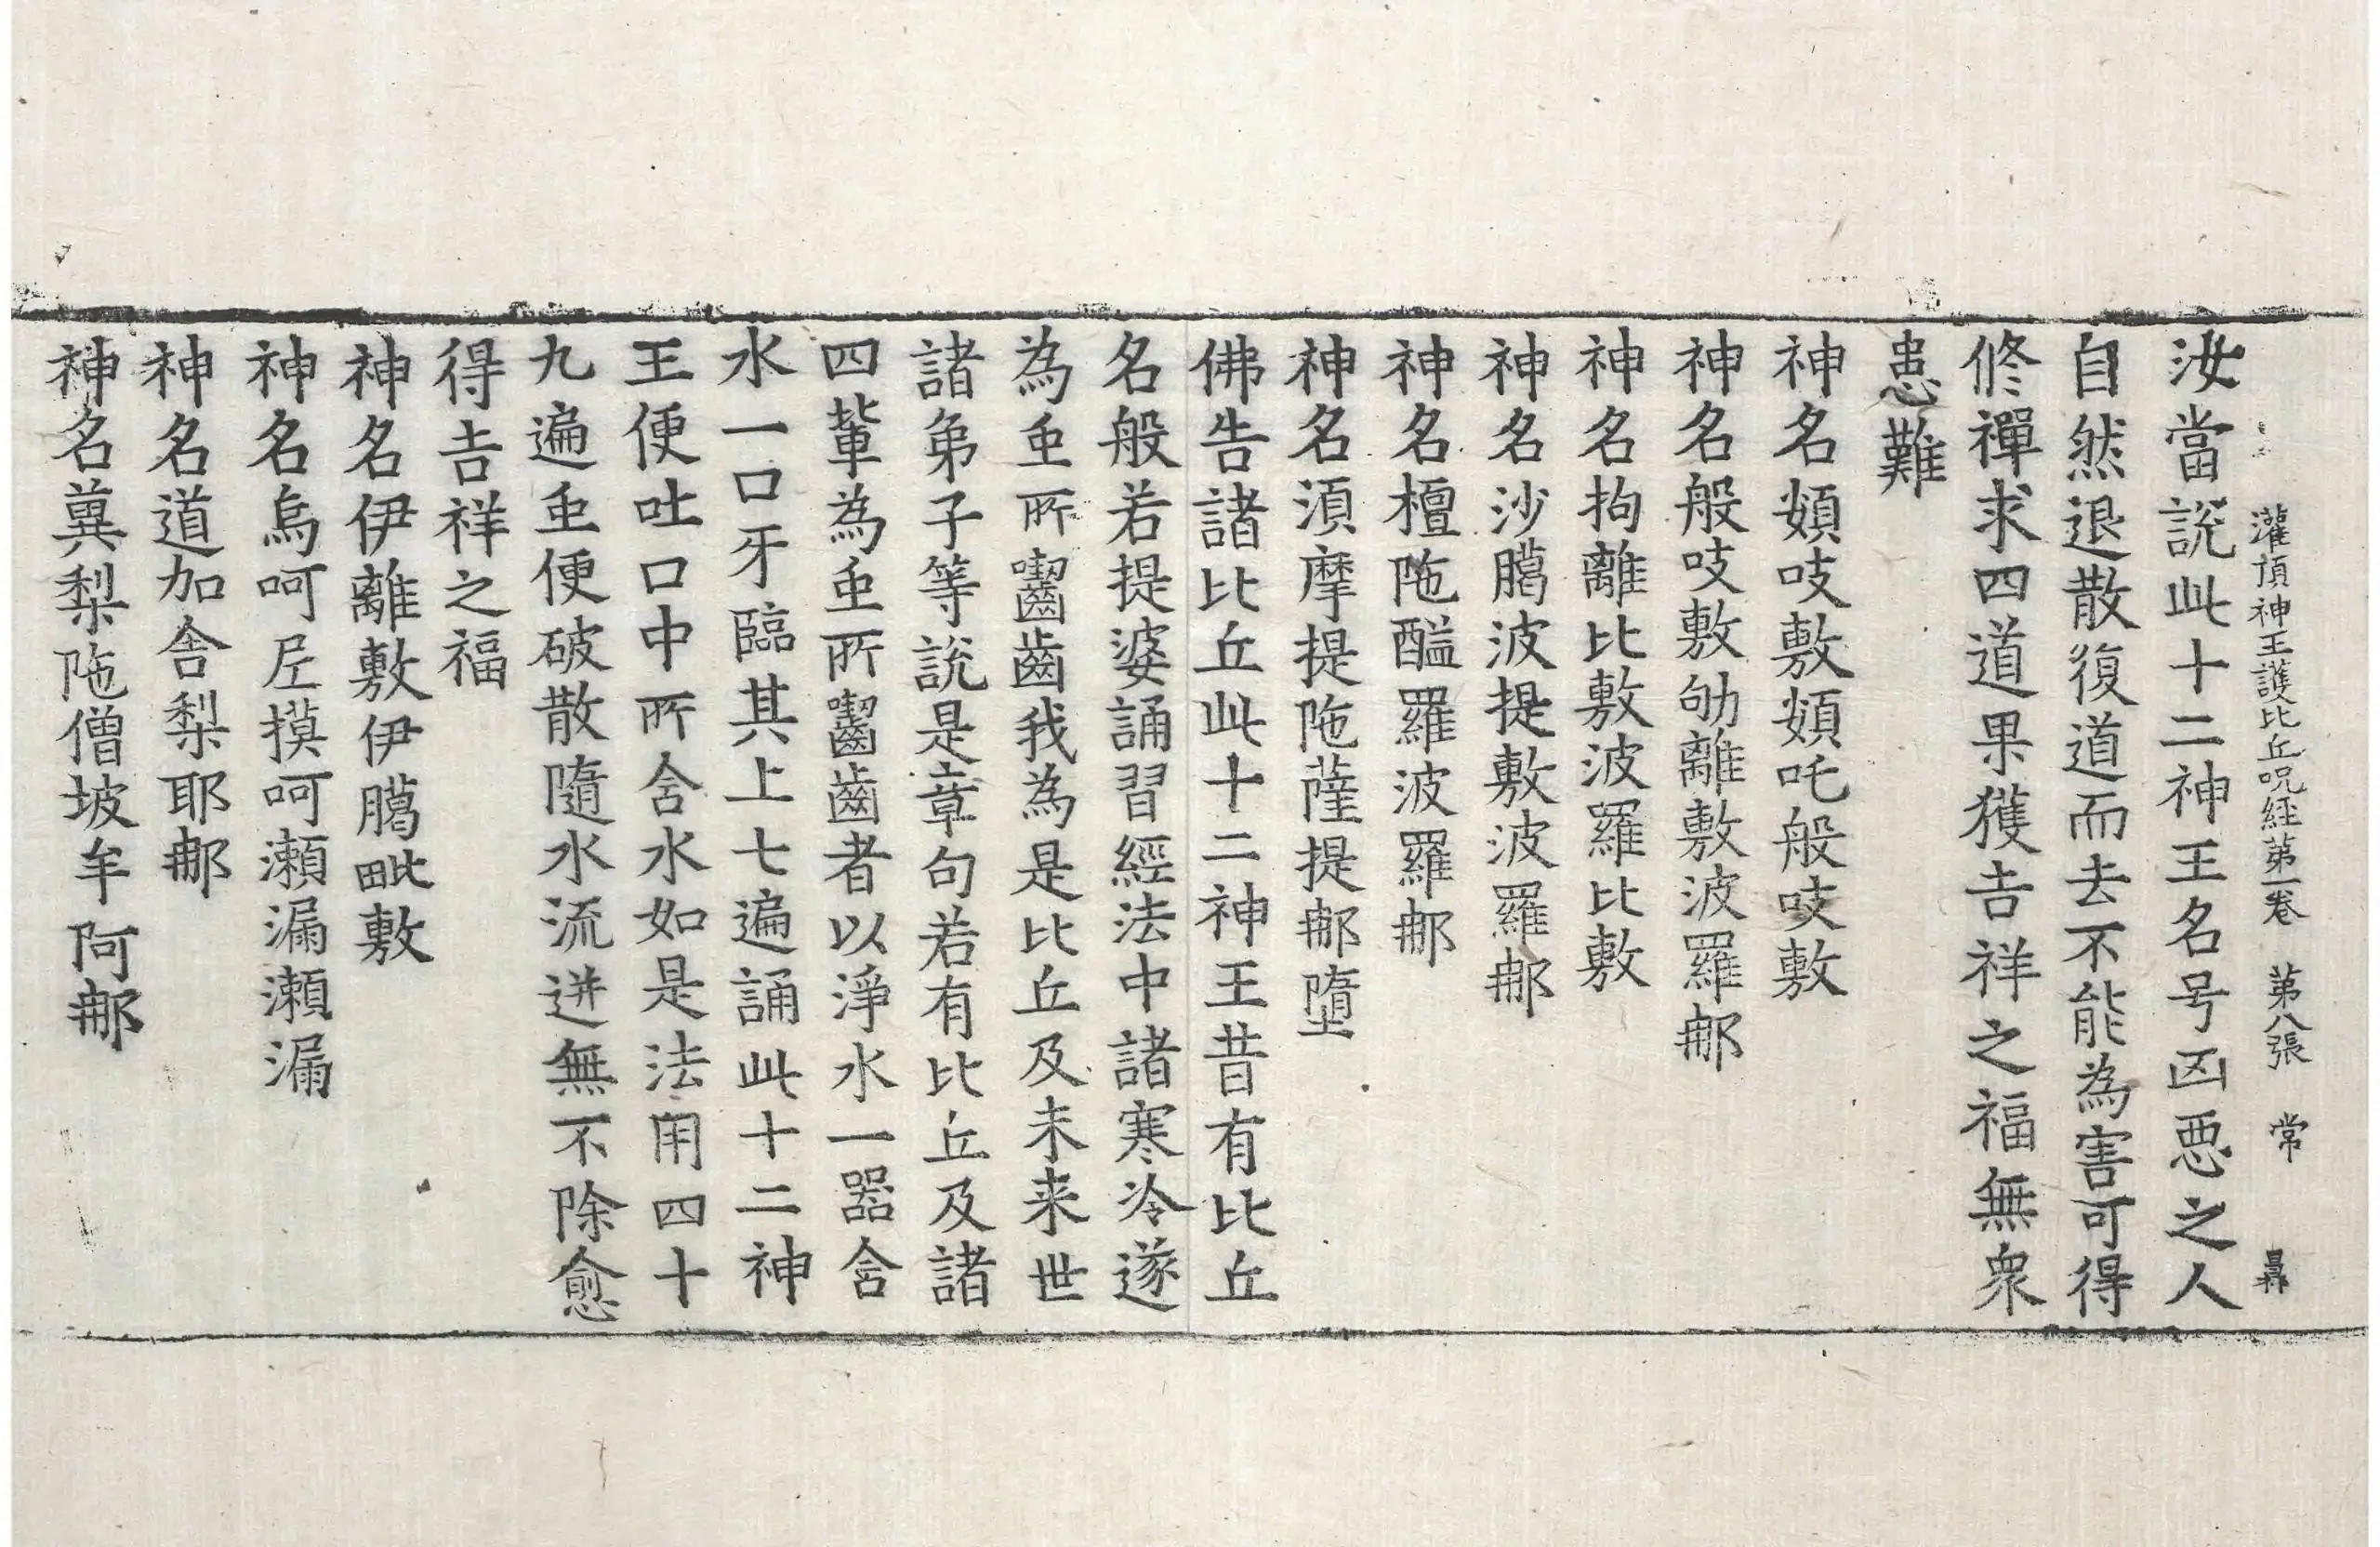 灌頂神王護比丘呪經第一卷　第八張　常
汝當說此十二神王名号凶惡之人
自然退散復道而去不能為害可得
修禪求四道果獲吉祥之福無衆
患難
神名頞吱敷頞吒般吱敷
神名般吱敷劬離敷波羅郍
神名拘離比敷波羅比敷
神名沙臈波提敷波羅郍
神名檀陁醯羅波羅郍
神名湏摩提陁薩提郍墮
佛告諸比丘此十二神王昔有比丘
名般若提婆誦習經法中諸寒冷遂
為虫所齧齒我為是比丘及未来世
諸弟子等說是章句若有比丘及諸
四軰為虫所齧齒者以淨水一器含
水一口牙臨其上七遍誦此十二神
王便吐口中所含水如是法用四十
九遍虫便破散隨水流迸無不除愈
得吉祥之福
神名伊離敷伊臈毗敷
神名烏呵𡰱摸呵瀬漏瀬漏
神名道加舍梨耶郍
神名䔬梨陁僧坡牟阿郍